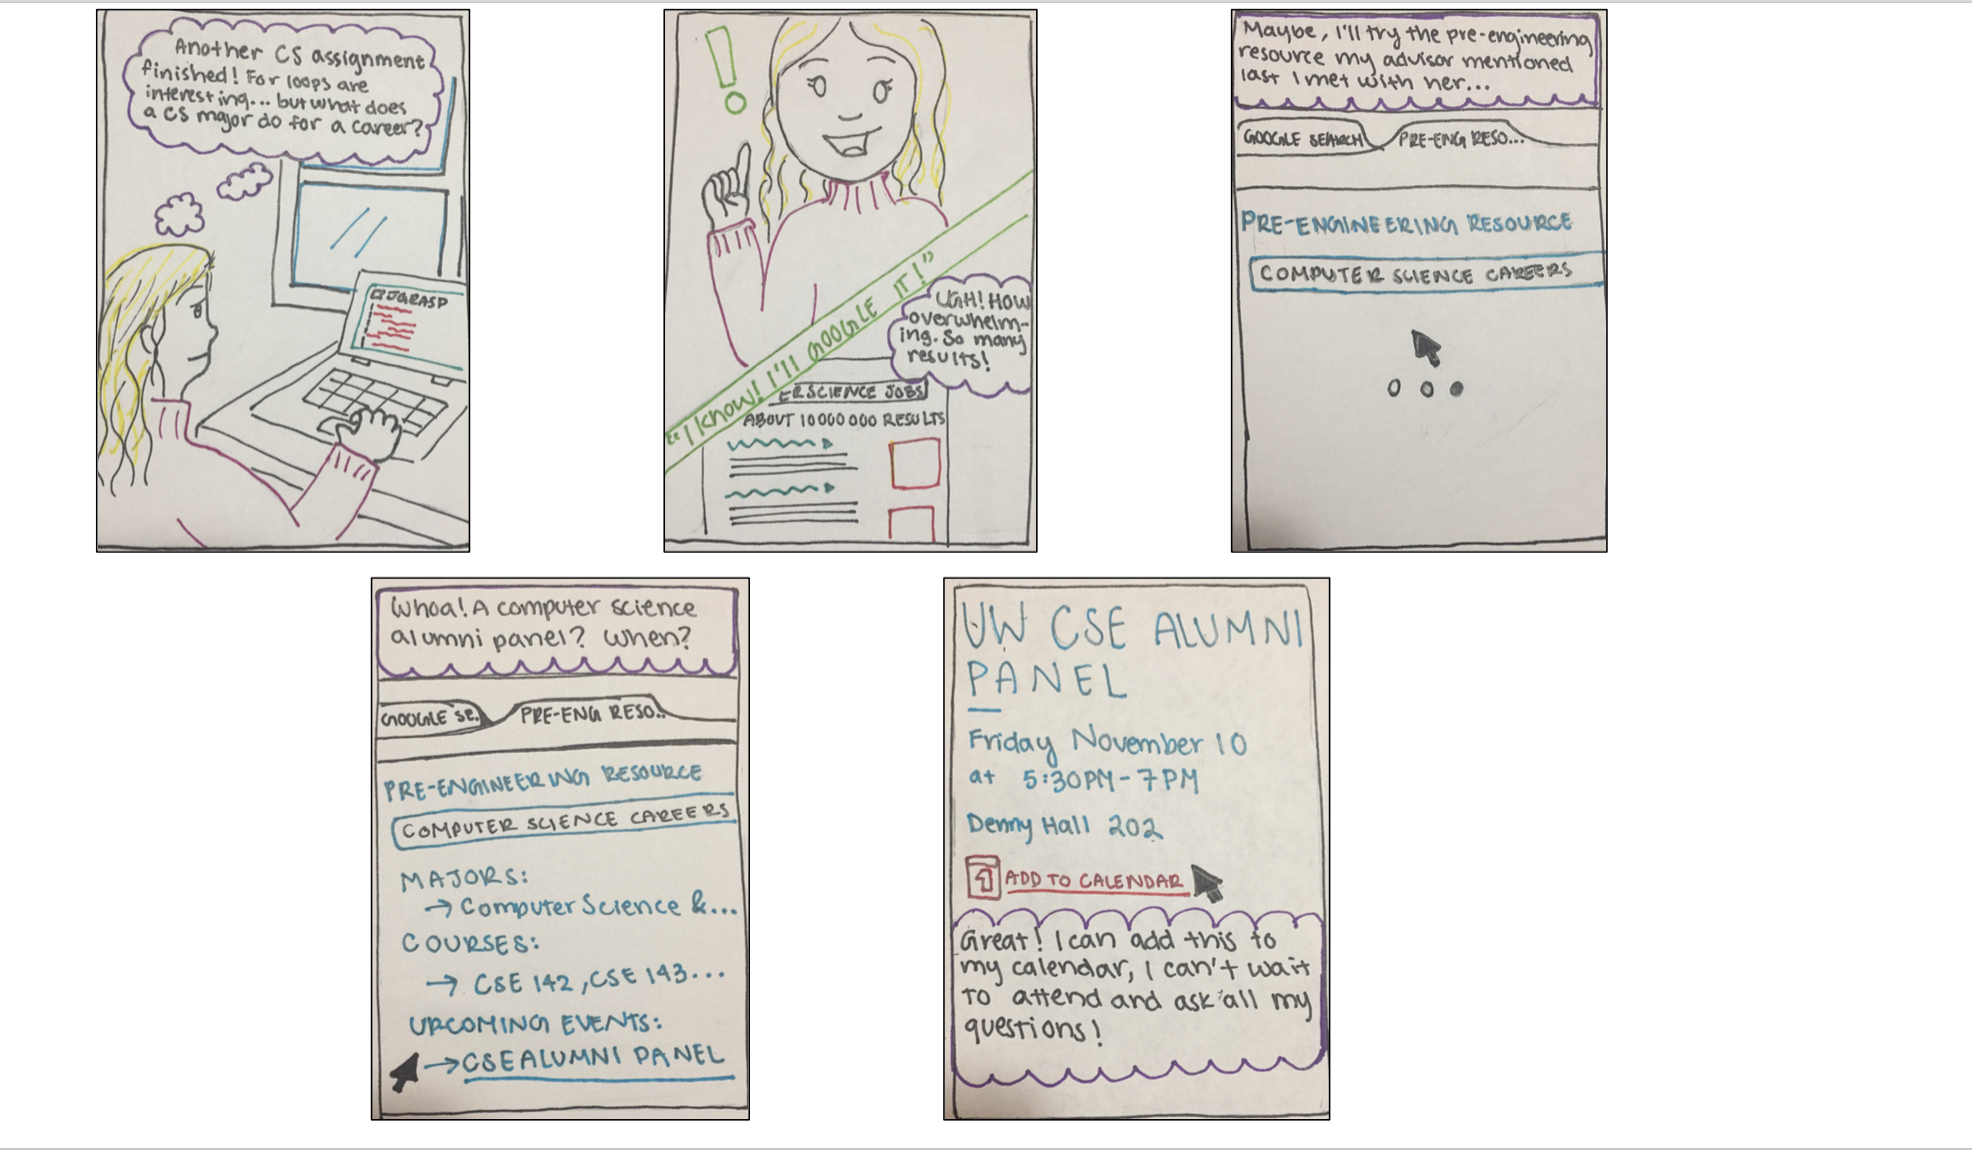 Another CS assignment
finished! For loops are
interesting... but what does
a CS major do for a career?
JGRASP
"I know! I'll GOOGLE IT!"
UGH! How
overwhelm-
ing. So many
results!
ER SCIENCE JOBS
ABOUT 10000000 RESULTS
Maybe, I'll try the pre-engineering
resource my advisor mentioned
last I met with her...
GOOGLE SEARCH
PRE-ENG RESO...
PRE-ENGINEERING RESOURCE
COMPUTER SCIENCE CAREERS
Whoa! A computer science
alumni panel? When?
GOOGLE SE.
PRE-ENG RESO..
PRE-ENGINEERING RESOURCE
COMPUTER SCIENCE CAREERS
MAJORS:
→ Computer Science &...
COURSES:
→ CSE 142, CSE 143...
UPCOMING EVENTS:
→ CSE ALUMNI PANEL
UW CSE ALUMNI
PANEL
Friday November 10
at 5:30PM-7PM
Denny Hall 202
1 ADD TO CALENDAR
Great! I can add this to
my calendar, I can't wait
to attend and ask all my
questions!